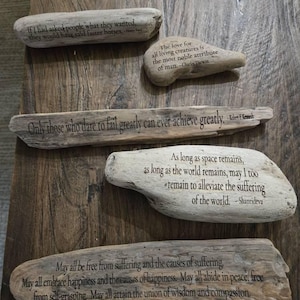 If I had asked people what they wanted,
they would have said faster horses.
The love for
all living creatures is
the most noble attribute
of man.
Only those who dare to fail greatly can ever achieve greatly.
As long as space remains,
as long as the world remains, may I too
remain to alleviate the suffering
of the world. - Shantideva
May all be free from suffering and the causes of suffering.
May all embrace happiness and the causes of happiness. May all abide in peace, free
from self-grasping. May all attain the union of wisdom and compassion.